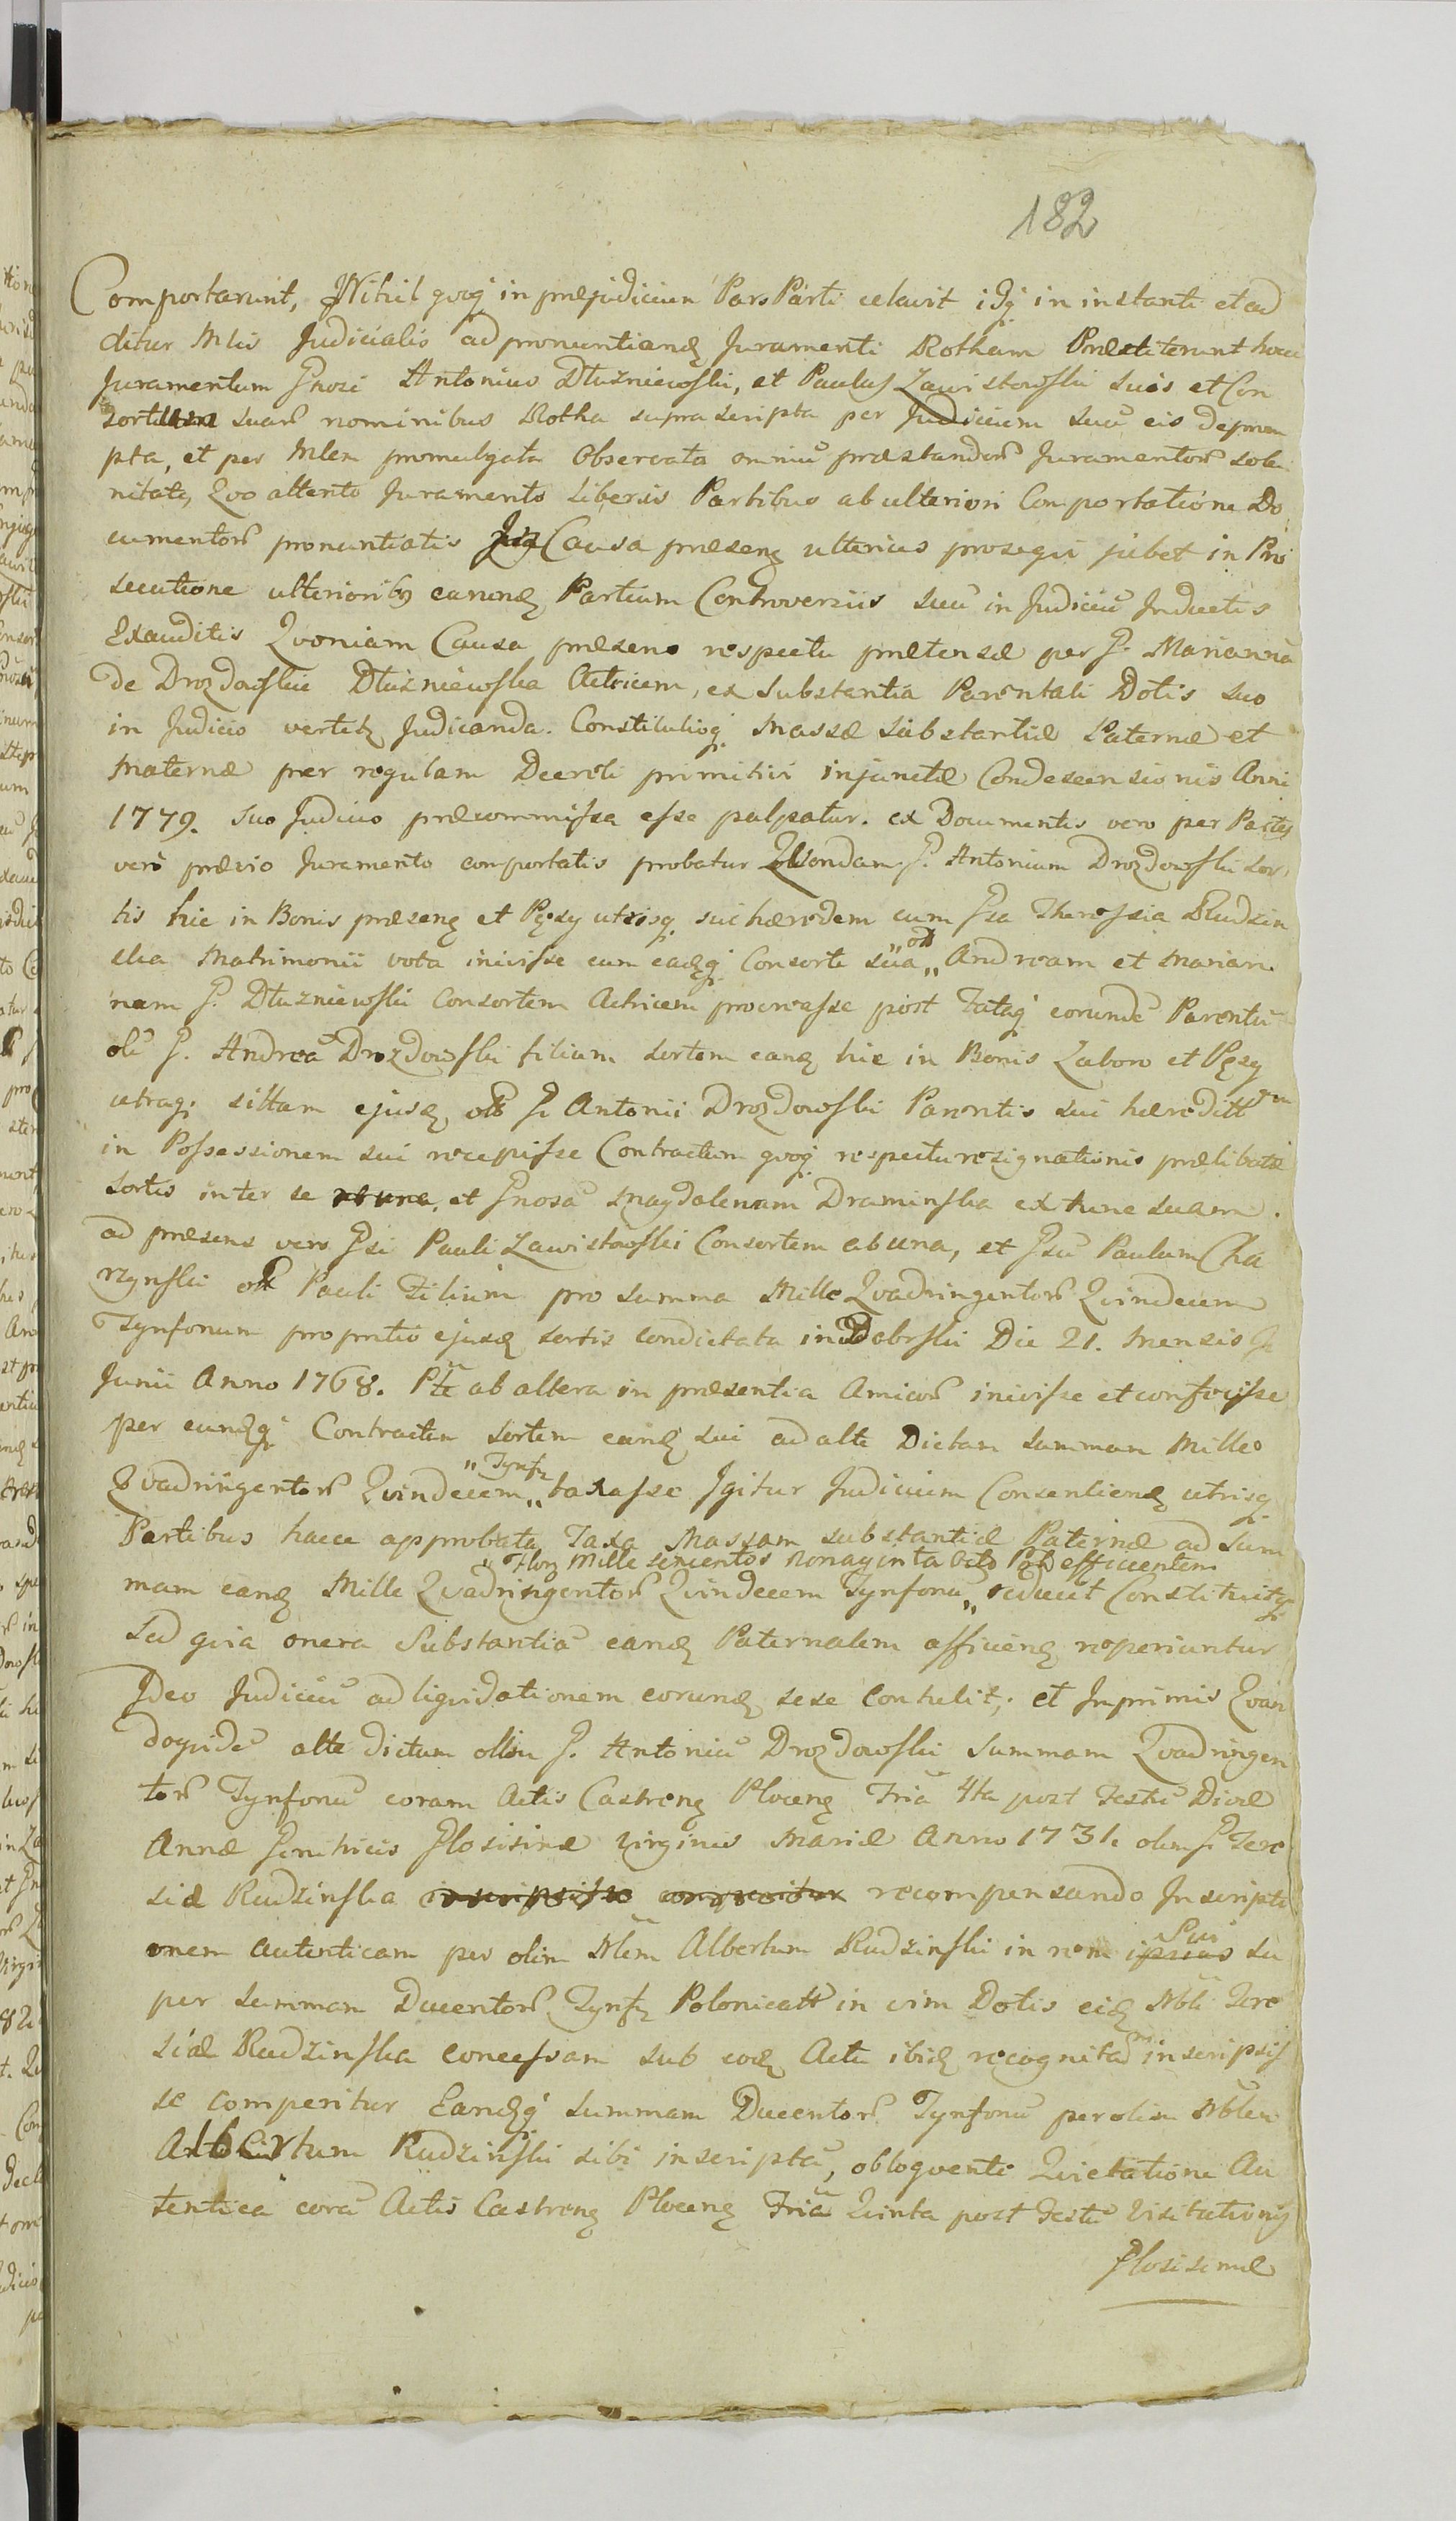 182
Comportarunt, Nihil qvoq in præjudicium Pars Parti celavit idq in instanti et ad
ditur Mlis Judicialis ad pronuntiandȩ Juramenti Rotham Præstiterunt hocce
Juramentum Gnosi Antonius Dłużniewski, et Paulus Zawistowski suis et Con
sortum suarū nominibus Rotha suprascripta per Judicium suū eis deprom
pta, et per Mlem promulgata Observata omniū præstandorū Juramentorū sole
nitate, Qvo attento Juramento liberis Partibus ab ulteriori Comportatione Do
cumentorū pronuntiatis Causa præsenȩ ulterius proseqvi jubet in Pro
secutione ulterioribȝ earundȩ Partium Controversiis suū in Judiciū Inductis
Exauditis Qvoniam Causa præsens respectu prætensæ per G. Marianna
de Drozdowskie Dłużniewska Actricem, ex Substantia Parentali Dotis suo
in Judicio vertitȩ Judicanda. Constitutioq Massæ Substantiæ Paternæ et
Maternæ per regulam Decreti primitivi injunctæ Condescensionis Anni
1779. suo Judicio præcommissa esse palpatur. ex Documentis vero per Partes
vero prævio Juramento comportatis probatur Qvondam G. Antonium Drozdowski sor
tis hic in Bonis præsenȩ et Pęsy utrisq sui hæredem cum Gsa Theressia Rudzin
ska Matrimonii vota inivisse cum eadȩq Consorte sua „ Andream et Marian
nam G. Dłużniewski Consortem Actricem procreasse post Fataq eorundē Parentū
olī G. Andreā Drozdowski filium sortem eandȩ hic in Bonis Zaboro et Pęsy
utraq sittam ejusdȩ olī G. Antonii Drozdowski Parentis sui hæreditt
in Possessionem sui recepisse Contractum qvoq respectu resignationis prælibatæ
sortis inter se et Gnosā Magdalenam Draminska ex tunc suam
ad præsens vero Gsi Pauli Zawistowski Consortem ab una, et Gsū Paulum Cha
rzynski olī Pauli Filium pro summa Mille Qvadringentorū Qvindecem
Tynfonum pro pretio ejusdȩ sortis condictata in Dobrski Die 21. Mensis
Junii Anno 1768. Pte ab altera in præsentia Amicorū inivisse et confecisse
per eundȩq Contractum sortem eandȩ sui ad alte Dictam summam Mille
Qvadringentorū Qvindecem „ Tynfȩ „ taxasse Igitur Judicium Consentienȩ utrisq
Partibus hacce approbata Taxa Massam substantiæ Paternæ ad sum
„ Flor Mille sexcentos Nonaginta Octo Pol efficientem
mam eandȩ Mille Qvadringentorū Qvindecem Tynfonū „ reducit Constituitq
Sed qvia onera Substantiā eandȩ Paternalem afficienȩ reperiuntur
Ideo Judiciū ad liqvidationem eorundȩ sese Contulit; et Inprimis Qvan
doqvidē alte dictum olim G. Antoniū Drozdowski Summam Qvadringen
torū Tynfonū coram Actis Castrenȩ Plocenȩ Fria 4ta post Festū Divæ
Annæ Genitricis Glosisimæ Virginis Mariæ Anno 1731. olim G. Tere
siæ Rudzinska inscripsisse comperitur recompensando Inscripti
onem autenticam per olim Mlem Albertum Rudzinski in rem ipsius Sui su
per Summam Ducentorū Tynfȩ Polonicatt in vim Dotis eidȩ Mbli Tere
siæ Rudzinska concessam sub eodȩ Actu ibidȩ recognitam inscripsis
se comperitur Eandȩq summam Ducentorū Tynfonū per olim Mblem
Albertum Rudzinski sibi inscriptā, obloqvente Qvietatione Au
tentica corā Actis Castrenȩ Plocenȩ Fria Qvinta post Festū Visitationis
Glosisimæ